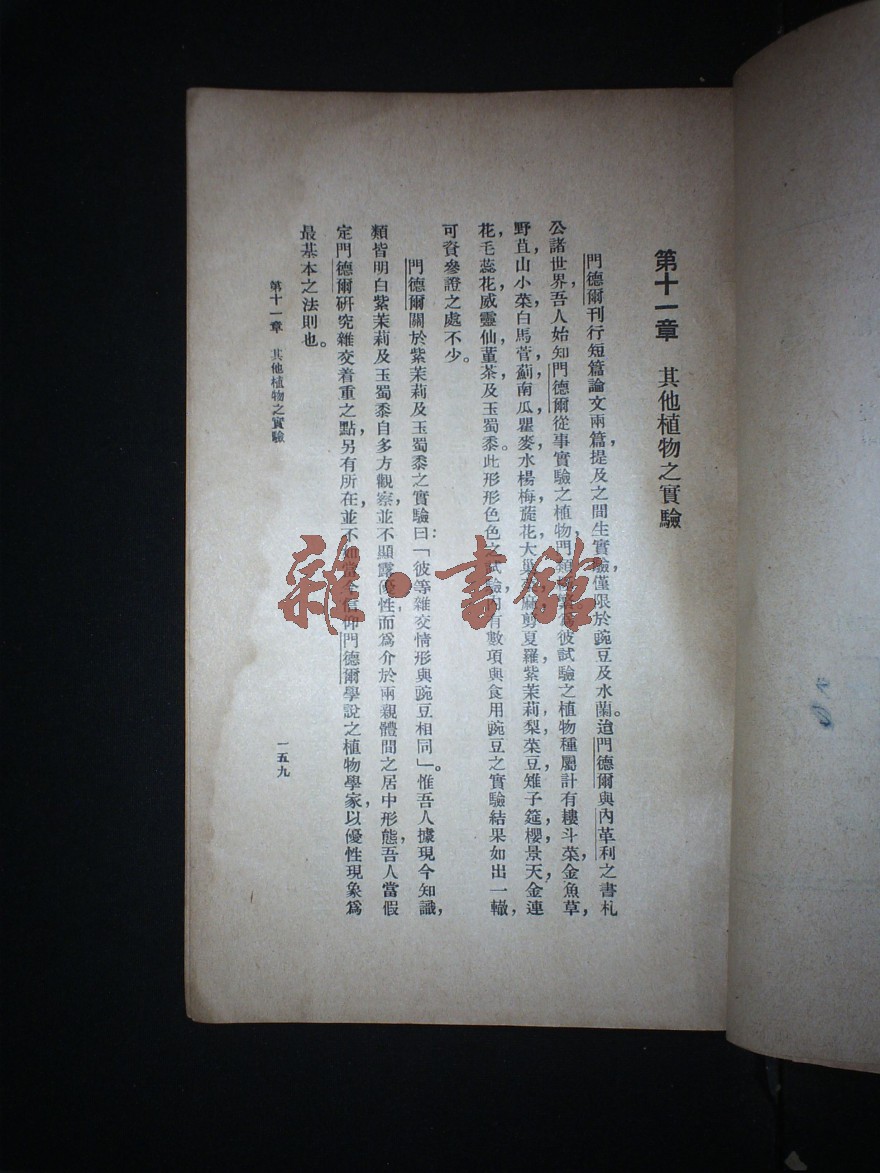 第十一章 其他植物之實驗
門德爾刊行短篇論文兩篇，提及之間生實驗，僅限於豌豆及水蘭。迨門德爾與內革利之書札
公諸世界，吾人始知門德爾從事實驗之植物，門類極繁。為彼試驗之植物種屬，計有樓斗菜，金魚草，
野苴，山小菜，白馬菅，薊，南瓜，瞿麥，水楊梅，蓰花，大巢菜，剪夏羅，紫茉莉，梨，菜豆，雉子筵，櫻，景天，金連
花，毛蕊花，威靈仙，菫茶及玉蜀黍。此形形色色之試驗，內有數項與食用豌豆之實驗結果如出一轍，
可資參證之處不少。
門德爾關於紫茉莉及玉蜀黍之實驗曰：「彼等雜交情形與豌豆相同」。惟吾人據現今知識，
類皆明白紫茉莉及玉蜀黍自多方觀察，並不顯露優性，而為介於兩親體間之居中形態，吾人當假
定門德爾研究雜交着重之點，另有所在，並不如信仰門德爾學說之植物學家，以優性現象為
最基本之法則也。
第十一章 其他植物之實驗
一五九
雜·書館